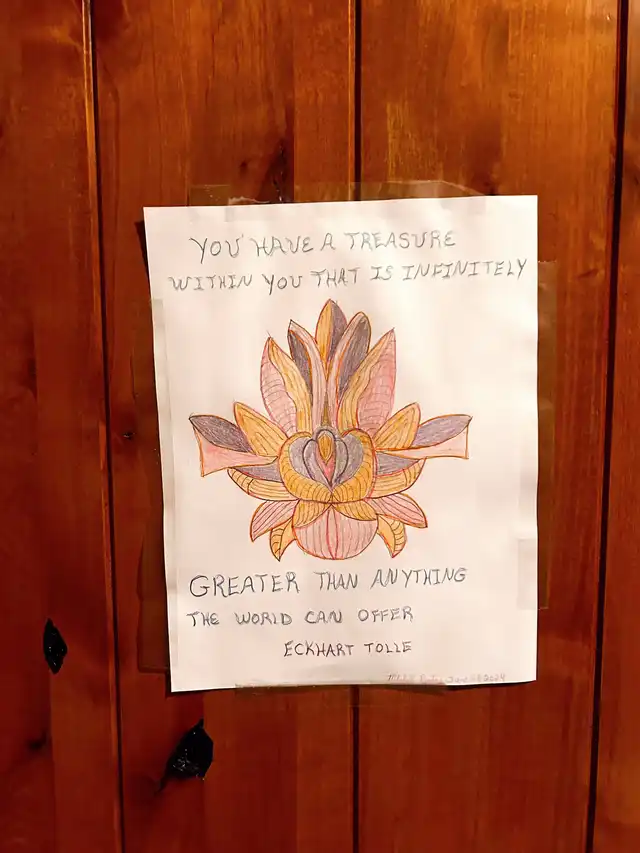 YOU HAVE A TREASURE
WITHIN YOU THAT IS INFINITELY
GREATER THAN ANYTHING
THE WORLD CAN OFFER
ECKHART TOLLE
2024